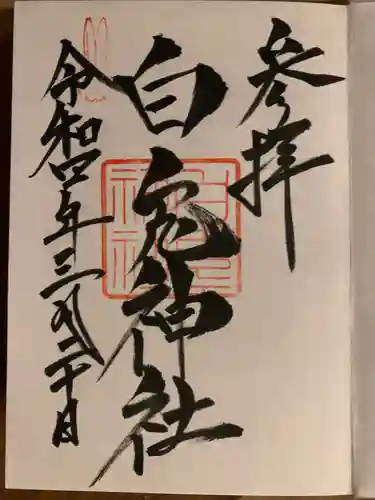 参拝
白兎神社
令和四年三月二十日